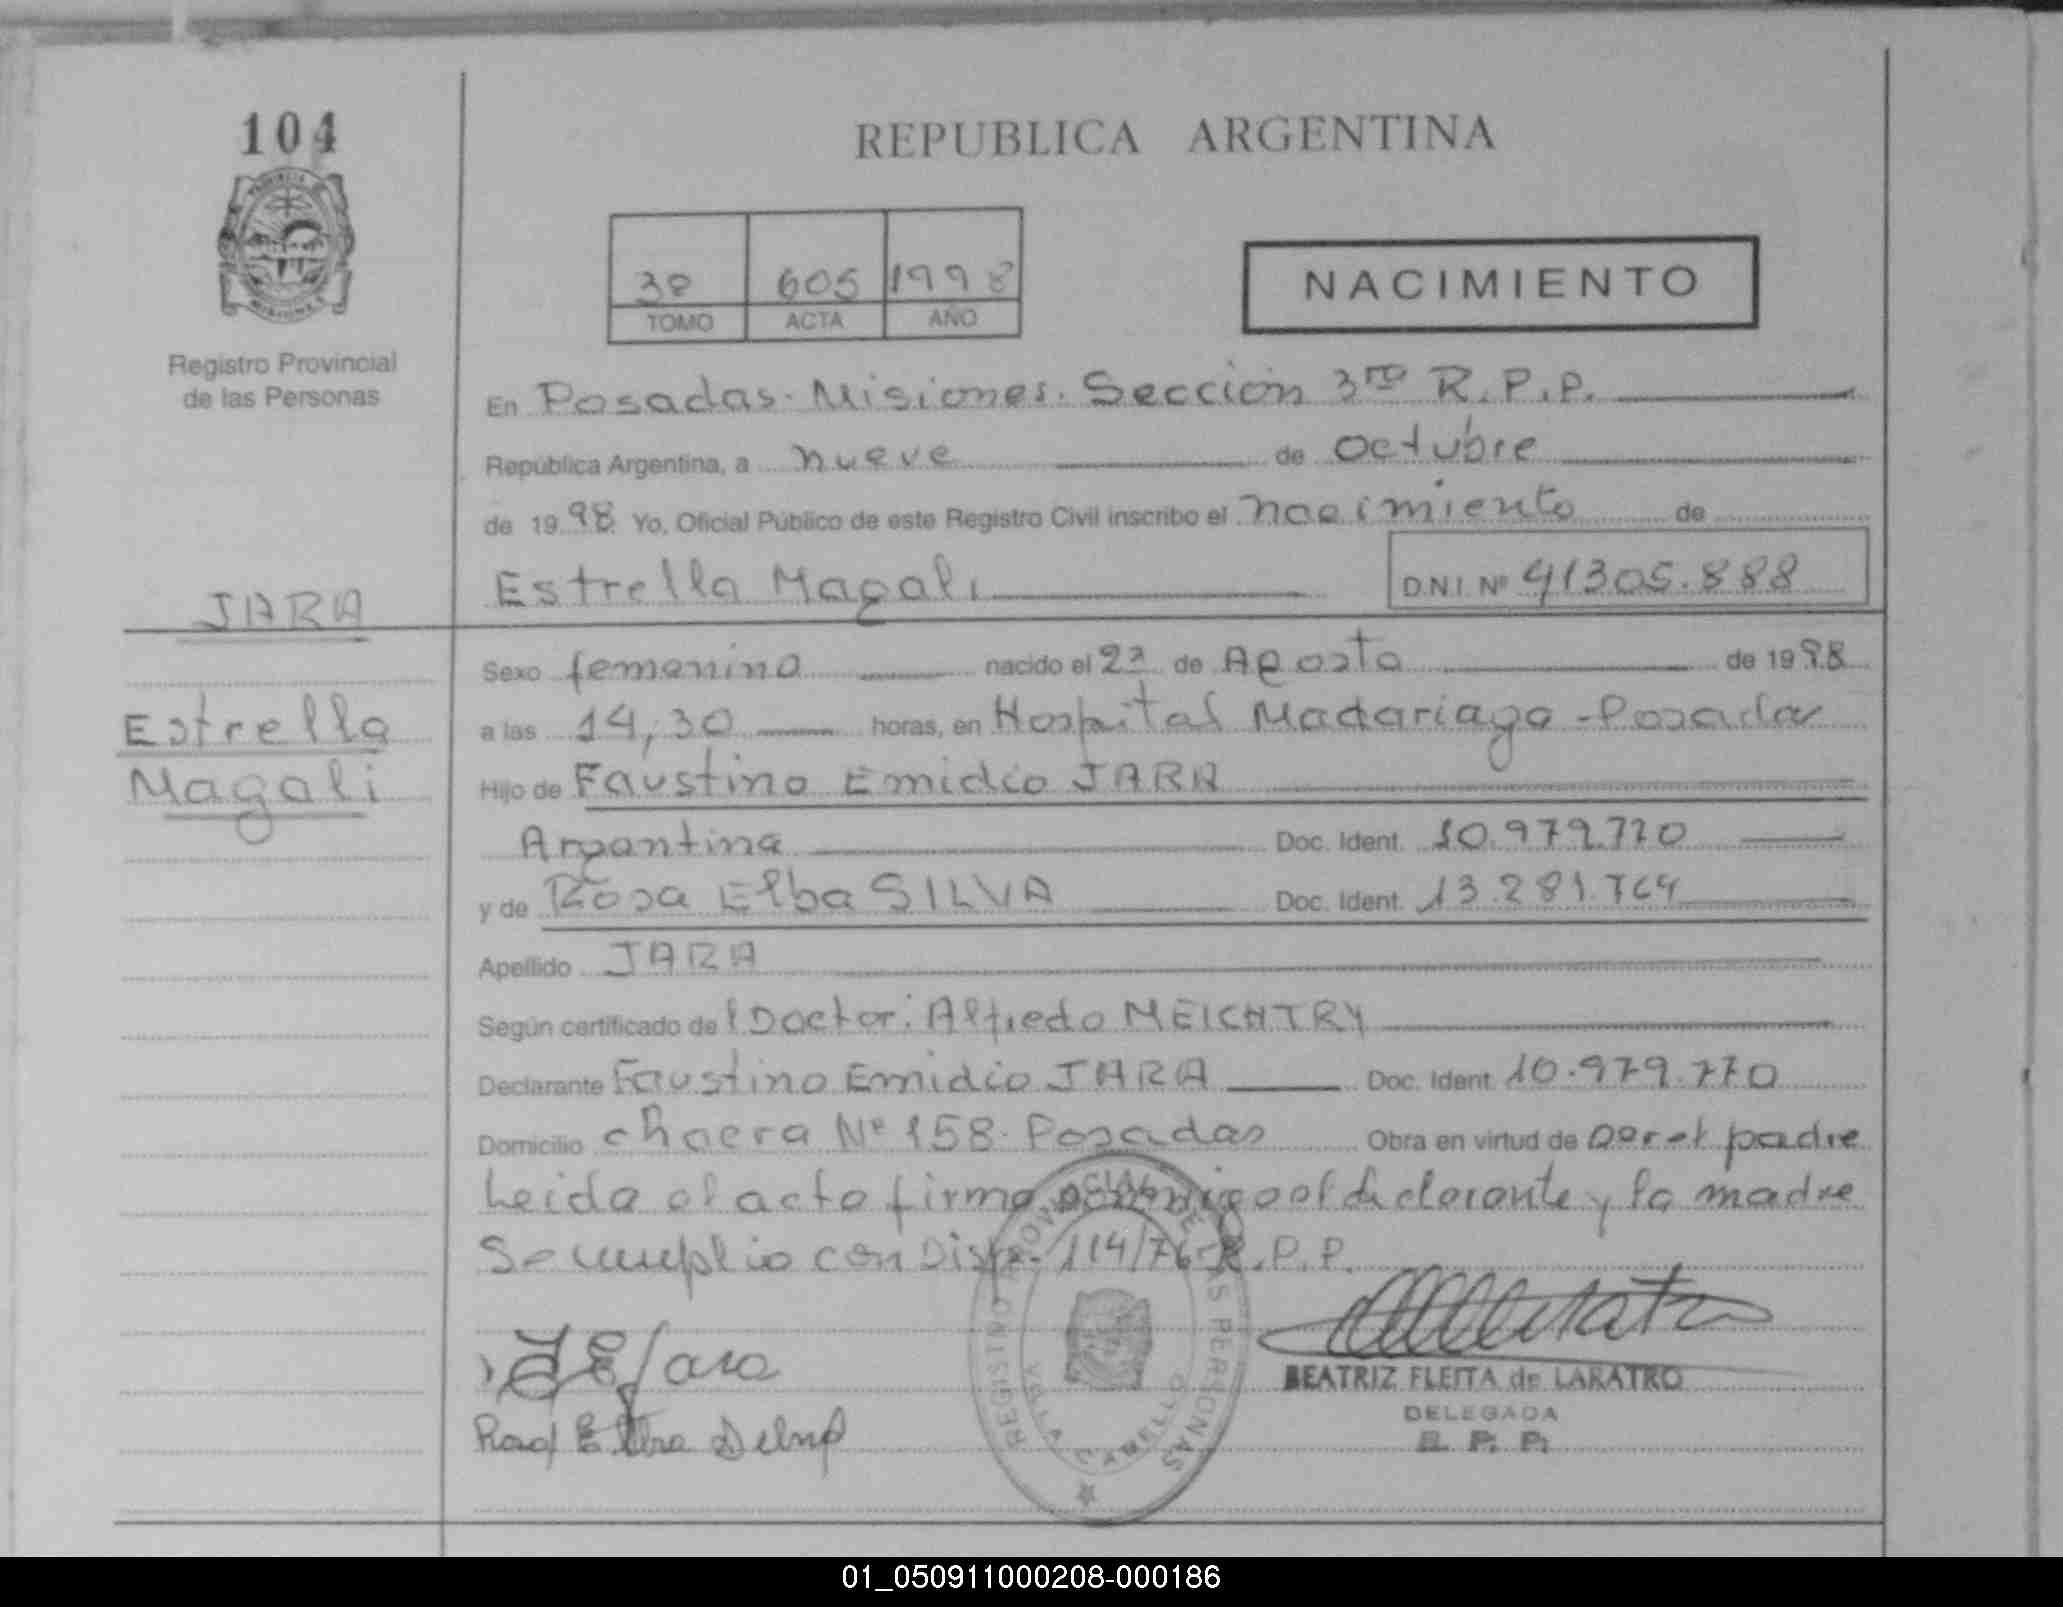 104
REPUBLICA ARGENTINA
3º 605 1998
TOMO ACTA AÑO
NACIMIENTO
Registro Provincial
de las Personas
En Posadas. Misiones. Sección 3ra R.P.P.
República Argentina, a nueve de octubre
de 1998 Yo, Oficial Público de este Registro Civil inscribo el nacimiento de
Estrella Magali D.N.I. Nº 41305.888
JARA
Estrella
Magali
Sexo femenino nacido el de Agosto de 1998
a las 14,30 horas, en Hospital Madariaga - Posadas
Hijo de Faustino Emidio JARA
Argentina Doc. Ident. 10.979.770
y de Rosa Elba SILVA Doc. Ident. 13.281.764
Apellido JARA
Según certificado del Doctor: Alfredo MEICHTRY
Declarante Faustino Emidio JARA Doc. Ident. 10.979.770
Domicilio chacra Nº 158. Posadas Obra en virtud de padre
Leida el acta firma conmigo el declarante y la madre
Se cumplio con Disp. 114/76 R.P.P.
REGISTRO PROVINCIAL DE LAS PERSONAS
VILLA CABELLO
BEATRIZ FLEITA de LARATRO
DELEGADA
R. P. P.
01_050911000208-000186